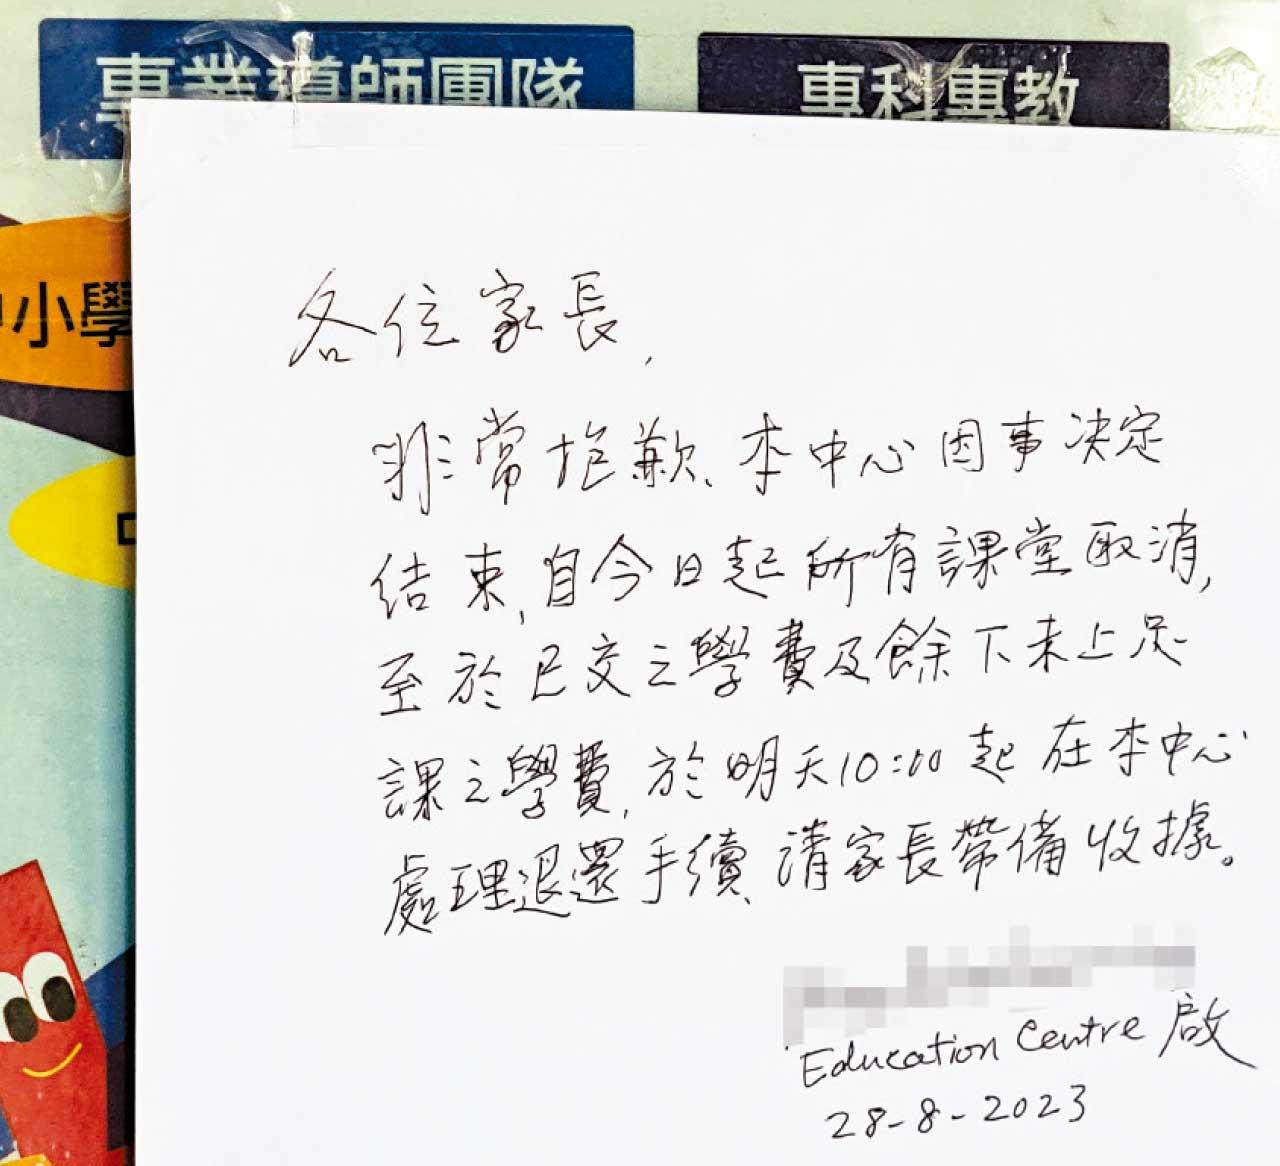 專業導師團隊
專科專教
小學
各位家長,
非常抱歉、本中心因事决定
结束,自今日起所有課堂取消,
至於已交之學費及餘下未上足
課之學費,於明天10:00起在本中心
處理退還手續、請家長帶備收據。
Education Centre 啟
28-8-2023